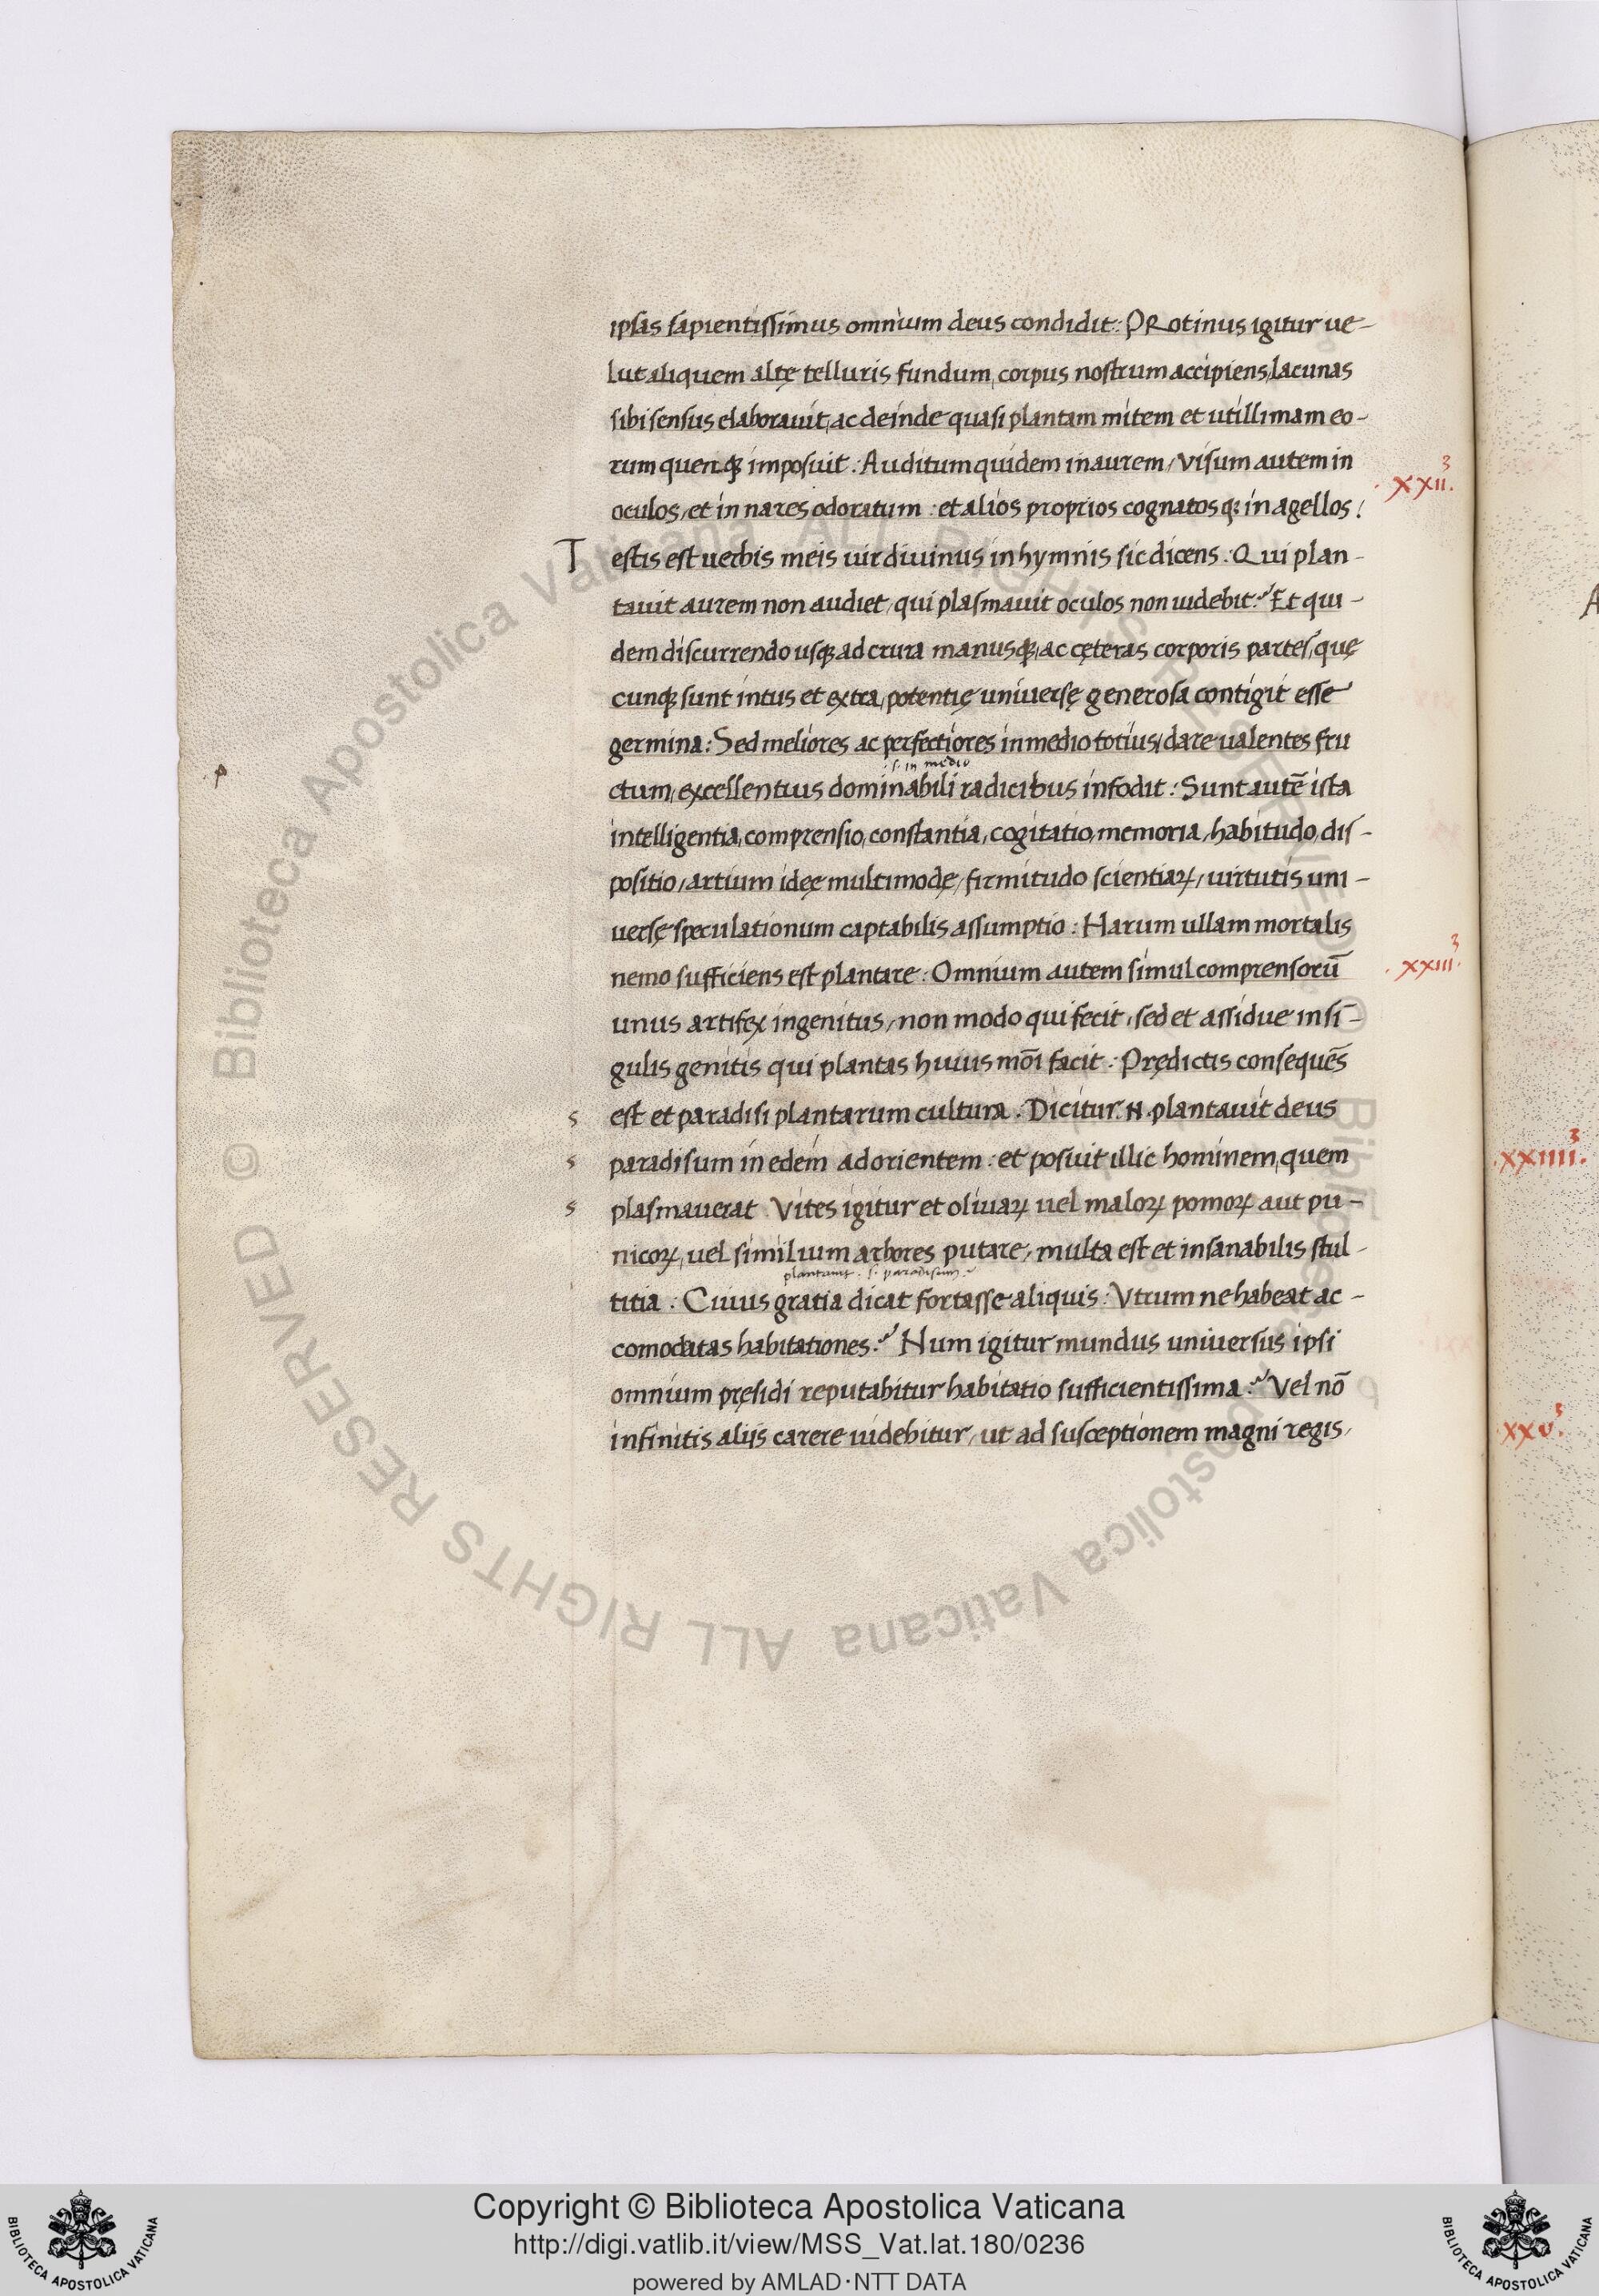 ipsas sapientissimus omnium deus condidit: PRotinus igitur ue-
lut aliquem altę telluris fundum, corpus nostrum accipiens, lacunas
sibi sensus elaborauit, ac deinde quasi plantam mitem et utillimam eo-
rum quenqꝫ imposuit: Auditum quidem in aurem, visum autem in
.XXII.3
oculos, et in nares odoratum: et alios proprios cognatosqꝫ in agellos:
Testis est uerbis meis uir diuinus in hymnis sic dicens: Qui plan-
tauit aurem non audiet, qui plasmauit oculos non uidebit? Et qui-
dem discurrendo usqꝫ ad crura manusqꝫ, ac cęteras corporis partes, quę
cunqꝫ sunt intus et extra, potentię uniuersę generosa contigit esse
germina: Sed meliores ac perfectiores in medio totius, dare ualentes fru
.s. in medio
ctum, excellentius dominabili radicibus infodit: Sunt autē ista
intelligentia, comprensio, constantia, cogitatio, memoria, habitudo, dis-
positio, artium idęę multimodę, firmitudo scientiaꝝ, uirtutis uni-
uersę speculationum captabilis assumptio: Harum ullam mortalis
.XXIII.3
nemo sufficiens est plantare: Omnium autem simul comprensorū
unus artifex ingenitus, non modo qui fecit, sed et assidue in si-
gulis genitis qui plantas huius mōi facit: Prędictis consequēs
s est et paradisi plantarum cultura. Dicitur .N. plantauit deus
s paradisum in edem ad orientem: et posuit illic hominem, quem
.XXIIII.3
s plasmauerat. Vites igitur et oliuaꝝ uel maloꝝ pomoꝝ aut pu-
nicoꝝ, uel similium arbores putare, multa est et insanabilis stul-
plantauit .s. paradisum
titia: Cuius gratia dicat fortasse aliquis: Vtrum ne habeat ac-
comodatas habitationes? Num igitur mundus uniuersus ipsi
omnium pręsidi reputabitur habitatio sufficientissima? Vel nō
.XXV.3
infinitis alijs carere uidebitur, ut ad susceptionem magni regis,
© Biblioteca Apostolica Vaticana ALL RIGHTS RESERVED © Biblioteca Apostolica Vaticana ALL RIGHTS RESERVED
Copyright © Biblioteca Apostolica Vaticana
http://digi.vatlib.it/view/MSS_Vat.lat.180/0236
powered by AMLAD·NTT DATA
BIBLIOTECA APOSTOLICA VATICANA
BIBLIOTECA APOSTOLICA VATICANA